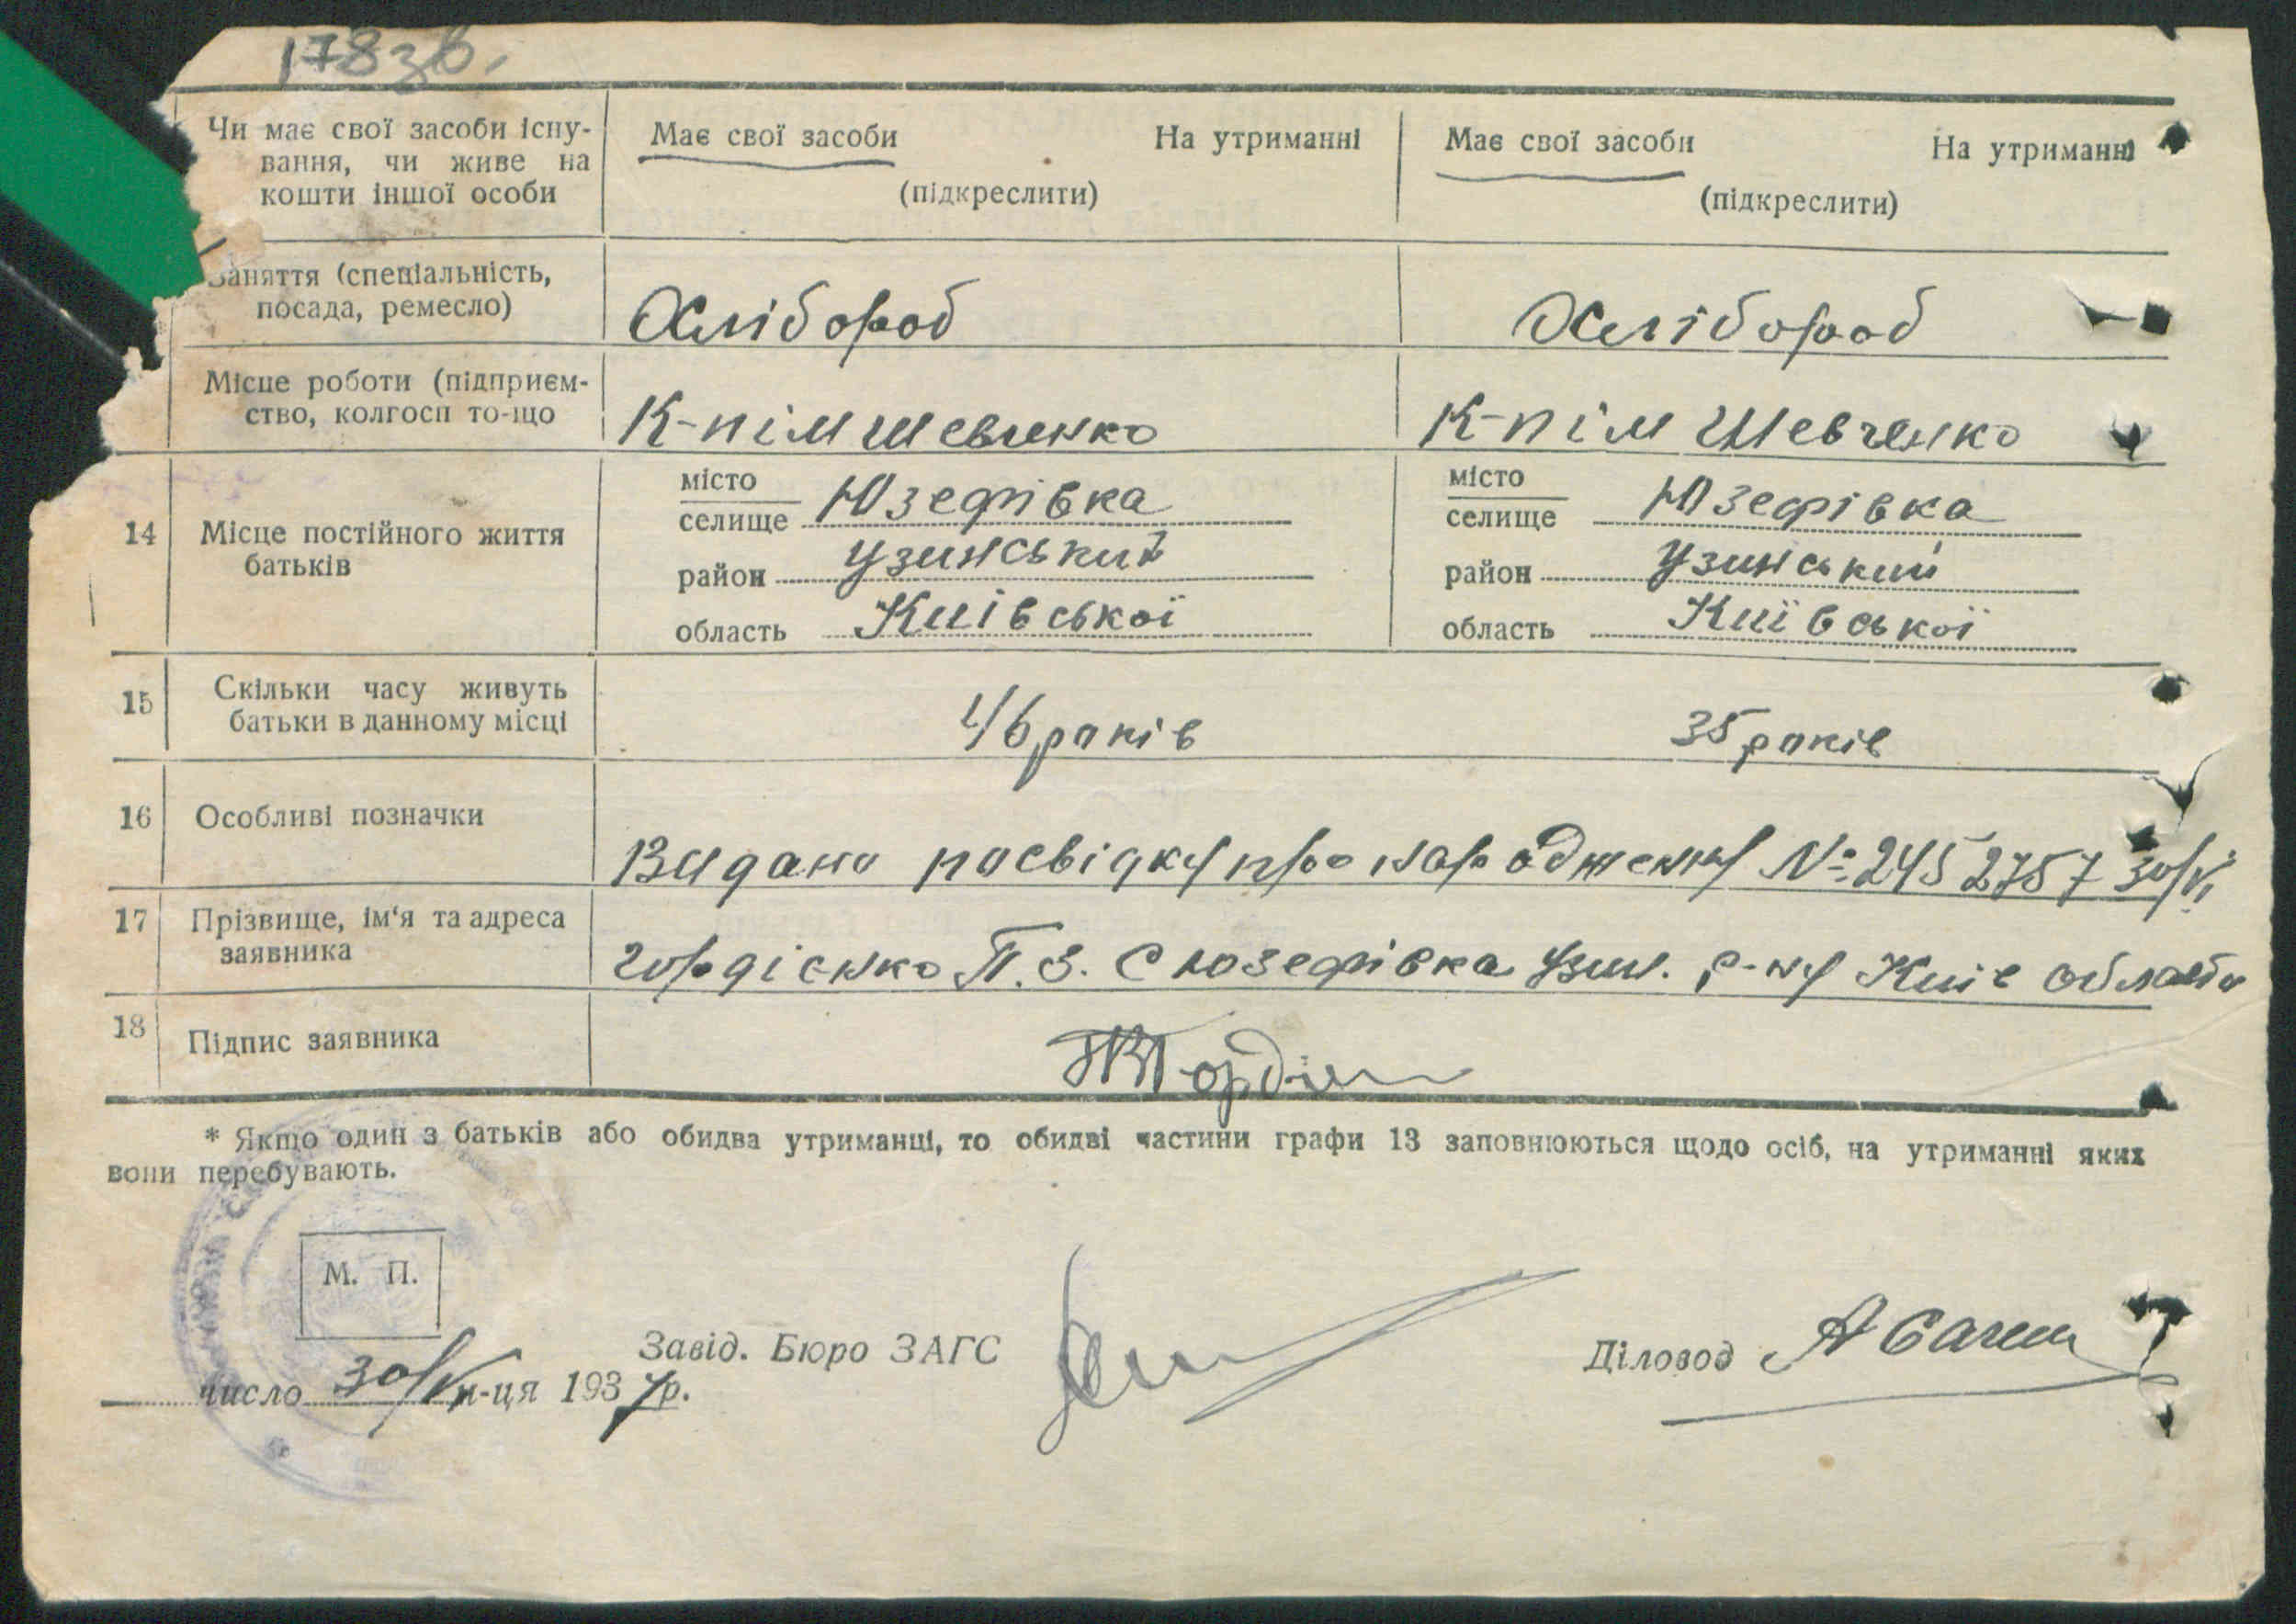 178зв.
Чи має свої засоби існу- Має свої засоби На утриманні Має свої засоби На утриманні
вання, чи живе на
кошти іншої особи (підкреслити) (підкреслити)
Заняття (спеціальність,
посада, ремесло) Хлібороб Хлібороб
Місце роботи (підприєм-
ство, колгосп то-що К-п ім Шевченко К-п ім Шевченко
14 Місце постійного життя
батьків
місто
селище Юзефівка
район Узинський
область Київської
місто
селище Юзефівка
район Узинський
область Київської
15 Скільки часу живуть
батьки в данному місці 46 років 35 років
16 Особливі позначки
Видано посвідку про народження № 2452757 30/VI
17 Прізвище, ім'я та адреса
заявника Гордієнко П. З. С Юзефівка Узин. р-ну Київ області
18 Підпис заявника
* Якщо один з батьків або обидва утриманці, то обидві частини графи 13 заповнюються щодо осіб, на утриманні яких
вони перебувають.
М. П.
Завід. Бюро ЗАГС
Діловод
число 30/VI м-ця 1937р.